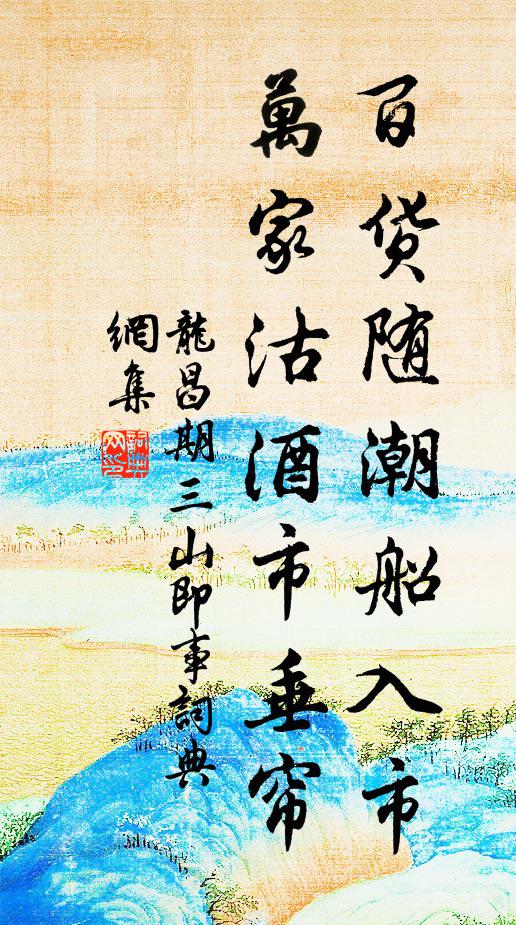 百货随潮船入市
萬家沽酒市垂帘
龍昌期三山即事詞典
網集